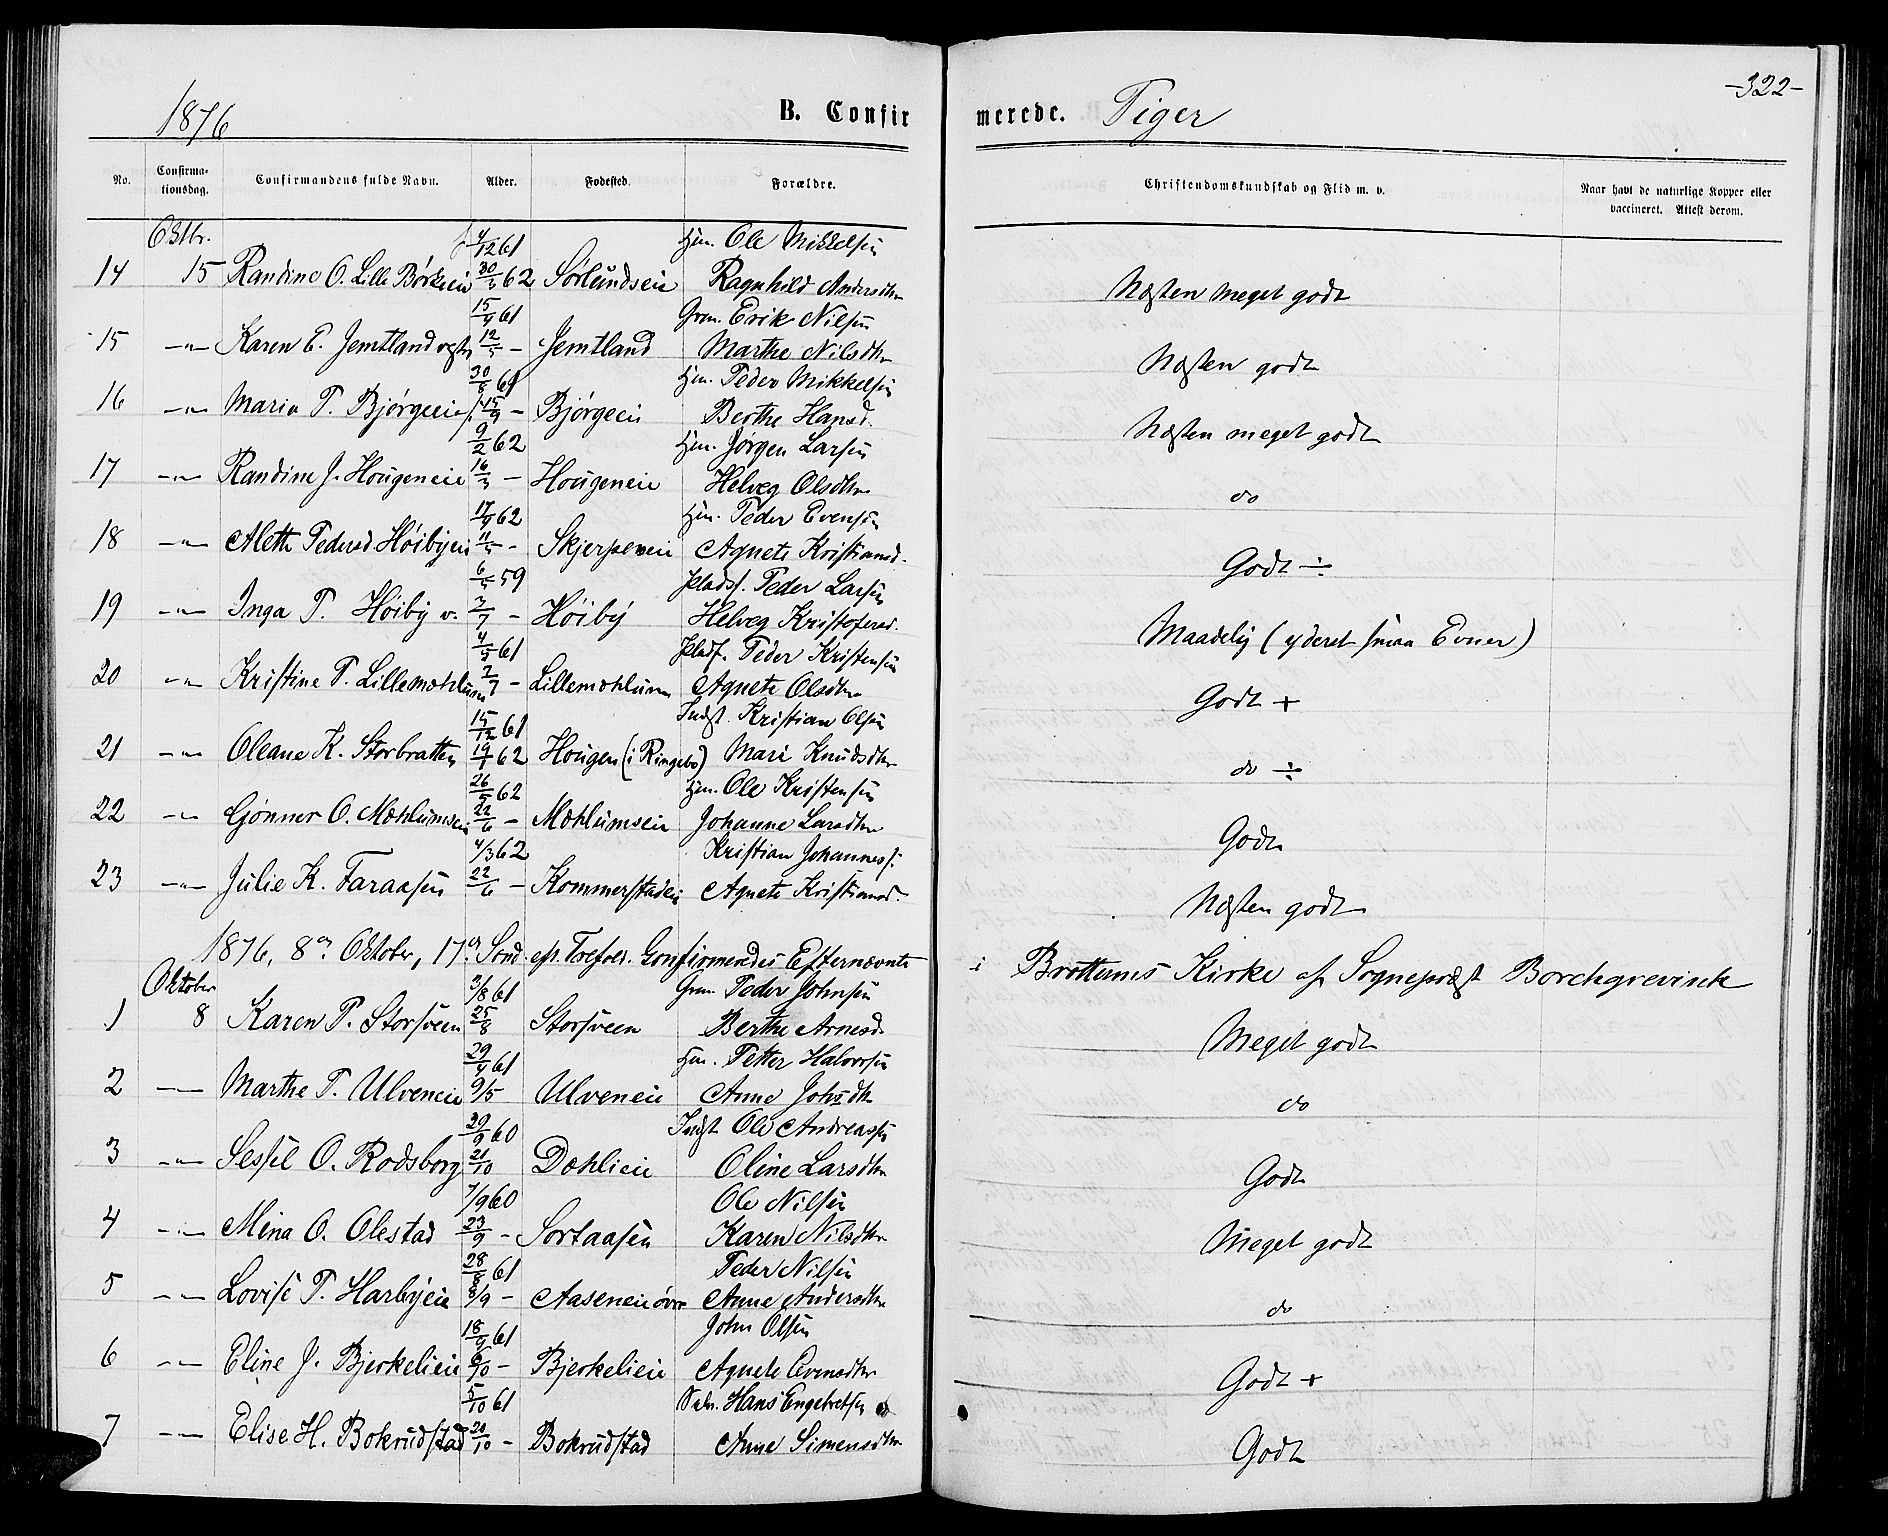 -322-
1876 B. Confirmerede. Piger
No. Confirmationsdag. Confirmandens fulde Navn. Alder. Fødested. Forældre. Christendomskundskab og Flid m. v. Naar havt de naturlige Kopper eller vaccineret. Attest derom.
Oktbr. 4/12 61 Hm. Ole Mikkelsen
14 15 Randine O. Lille Børkeeie 30/3 62 Sørlundseie Ragnhild Andersdtr Næsten meget godt
15/4 61 Grm. Erik Nilsen
15 -"- Karen E. Jemtland 12/5 - Jemtland Marthe Nilsdtr Næsten godt
30/8 61 Hm. Peder Mikkelsen
16 -"- Maria P. Bjørgeeie 15/9 - Bjørgeeie Berthe Hansd. Næsten meget godt
9/2 62 Hm. Jørgen Larsen
17 -"- Randine J. Hougeneie 16/3 - Hougeneie Helveg Olsdtr do
17/4 62 Hm. Peder Evensen
18 -"- Aleth Pedersd Høibyeie 11/5 - Skjerpeneie Agnete Kristiansd. Godt ÷
6/5 59 Pladsf. Peder Larsen
19 -"- Inga P. Høiby v. 3/7 - Høiby Helveg Kristofersd. Maadelig (yderst smaa Evner)
4/5 61 Pladsf. Peder Kristensen
20 -"- Kristine P. Lillemæhlum 7/7 - Lillemæhlum Agnete Olsdtr Godt +
15/12 61 Indst. Kristian Olsen
21 -"- Oleane K. Storbratten 19/1 62 Hougen (i Ringebo) Mari Knudsdtr do ÷
26/5 62 Hm. Ole Kristensen
22 -"- Gjønner O. Mæhlumseie 22/6 - Mæhlumseie Johanne Larsdtr Godt
4/3 62 Kristian Johanness.
23 -"- Julie K. Faraasen 22/6 - Kommerstadeie Agnete Kristiansd. Næsten godt
1876, 8de Oktober, 17de Sønd. eft. Trefold. Confirmeredes Efternævnte i Brøttums Kirke af Sognepræst Borchgrevink
Oktober 3/8 61 Grm. Peder Johnsen
1 8 Karen P. Storsveen 25/8 Storsveen Berthe Arnesd. Meget godt
29/4 61 Hm. Petter Halvorsen
2 -"- Marthe P. Ulveneie 9/5 Ulveneie Anne Johsdtr do
29/9 60 Indst Ole Andreassen
3 -"- Sessel O. Rodsborg 21/10 Dæhlieie Oline Larsdtr Godt
7/9 60 Ole Nilsen
4 -"- Mina O. Olestad 23/9 - Sortaasen Karen Nilsdtr Meget godt
28/8 61 Peder Nilsen
5 -"- Lovise P. Harbyeie 8/9 - Aaseneie øvre Anne Andersdtr do
18/9 61 John Olsen
6 -"- Eline J. Bjerkelieie 6/10 - Bjerkelieie Agnete Evensdtr Godt +
5/10 61 Hans Engebretsen
7 -"- Elise H. Bokrudstad 20/10 - Bokrudstad Anne Simensdtr. Godt